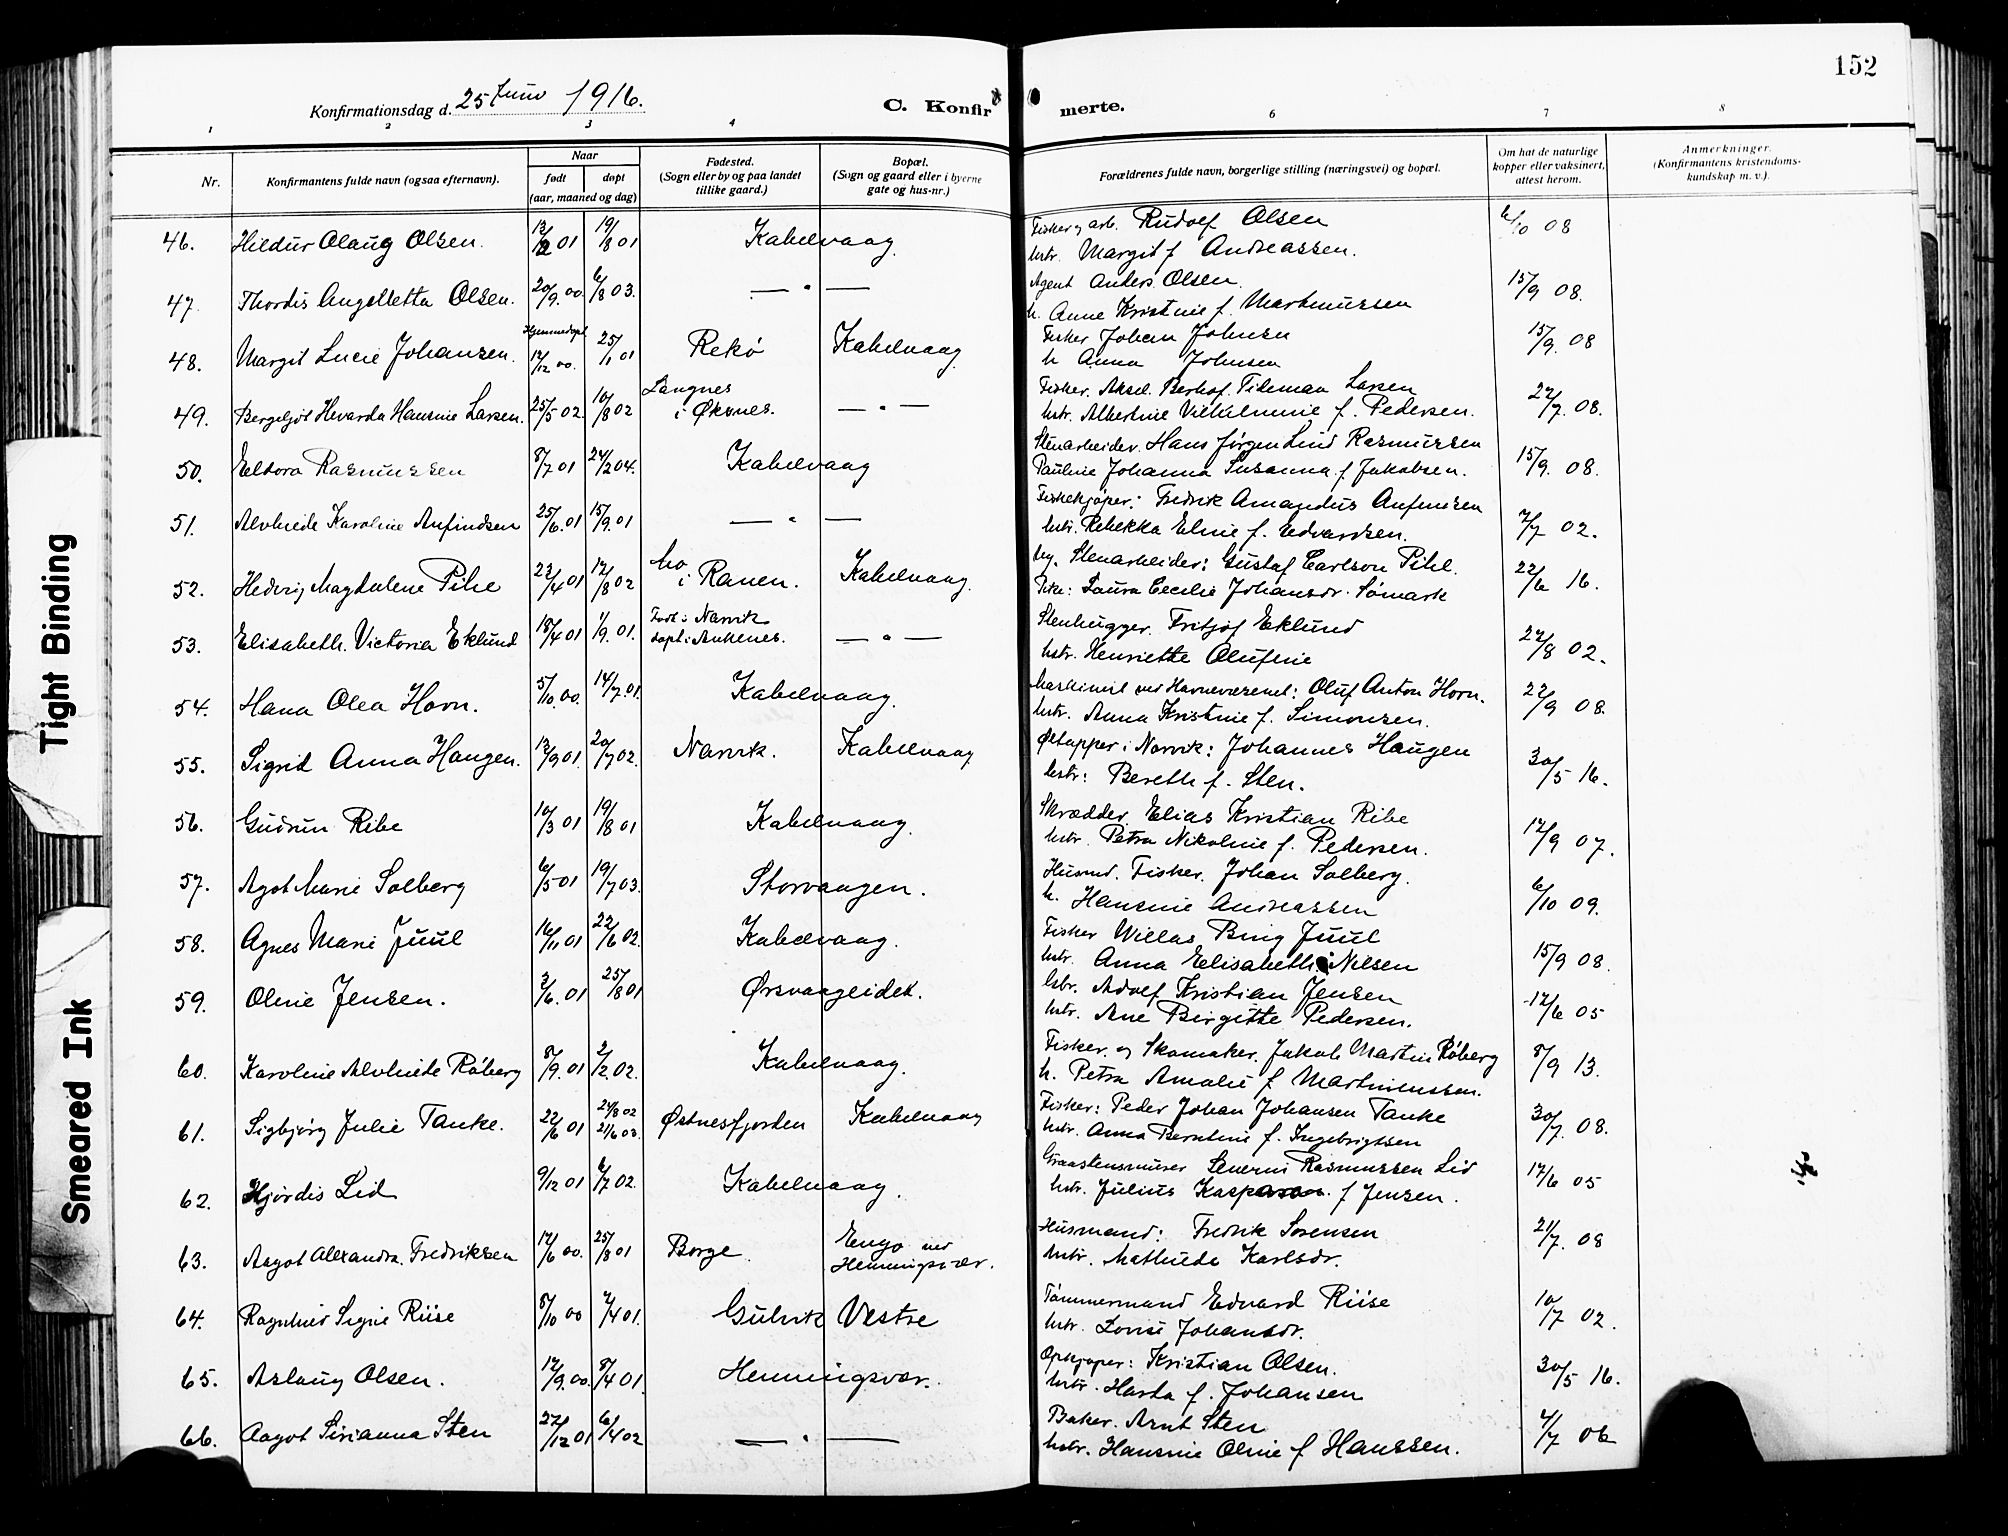 152
Konfirmationsdag d. 25 Juni 1916.
C. Konfirmerte.
1 2 3 4 6 7 8
Nr.
Konfirmantens fulde navn (ogsaa efternavn).
Naar
født døpt
(aar, maaned og dag)
Fødested.
(Sogn eller by og paa landet
tillike gaard.)
Bopæl.
(Sogn og gaard eller i byerne
gate og hus-nr.)
Forældrenes fulde navn, borgerlige stilling (næringsvei) og bopæl.
Om hat de naturlige
kopper eller vaksinert,
attest herom.
Anmerkninger.
(Konfirmantens kristendoms-
kundskap m. v.).
46. Hildur Olaug Olsen. 01 19/8 01 Kabelvaag. Fisker og arb. Rudolf Olsen 6/10 08
hstr. Margit f. Andreassen.
47. Thordis Angelletta Olsen. 20/9 00 6/8 03. — " — Agent Anders Olsen. 15/9 08.
h. Anne Kristine f. Martinussen
Hjemmedøpt
48. Margit Lucie Johansen. 17/12 00. 25/1 01 Rekø Kabelvaag. Fisker Johan Johnsen 15/9. 08
h Anna Johnsen
49. Bergeljot Hevarda Hansine Larsen. 25/5 02. 10/8 02 Langnes i Øksnes. — " — Fisker. Aksel Berhof. Tideman Larsen 22/7. 08.
hstr. Albertine Vilhelmine f. Pedersen.
50. Eldora Rasmussen 8/7 01 24/2 04. Kabelvaag Stenarbeider. Hans Jørgen Lund Rasmussen 15/9. 08.
Pauline Johanna Susanna f. Jakobsen.
51. Alvhilde Karoline Anfindsen 25/6. 01 15/9. 01 — " — Fiskekjøper: Fredrik Amandus Anfinsen 7/7 02.
hstr. Rebekka Eline f. Edvardsen.
52. Hedvig Magdalene Pihl 23/4 01 17/8 02 Mo i Ranen. Kabelvaag. Ug. Stenarbeider: Gustaf Carlson Pihl. 22/6 16.
Pike: Laura Cecilie Johansdr. Sømark
53. Elisabeth. Victoria Eklund 18/4 01 1/9. 01. Født i Narvik døpt i Ankenes. — " — Stenhugger. Fritjof Eklund 27/8 02.
hstr. Henriette Olufine
54. Hana Olea Hovn. 5/10. 00. 14/7. 01. Kabelvaag. Maskinist ved Havnevæsenet: Oluf Anton Hovn. 22/9 08.
hstr. Anna Kristine f. Simonsen.
55. Sigrid Anna Haugen. 13/9 01. 20/7 02. Narvik. Kabelvaag Øltapper i Narvik: Johannes Haugen 30/5 16.
hstr: Bereth f. Sten.
56. Gudrun Ribe 10/3 01 19/8 01 Kabelvaag. Skrædder. Elias Kristian Ribe 17/9 07.
hstr. Petra Nikoline f. Pedersen.
57. Agot Marie Solberg 6/5 01 19/7 03. Storvaagen. Husmd. Fisker. Johan Solberg. 6/10 09.
h. Hansine Andreassen
58. Agnes Marie Juul 16/11 01 22/6 02. Kabelvaag. Fisker Willas Bing Juul 15/9 08.
hstr. Anna Elisabeth Nilsen
59. Oline Jensen. 2/6. 01 25/8 01 Ørsvaageidet. Gbr. Adolf Kristian Jensen 17/6 05
hstr. Ane Birgitte Pedersen.
60. Karoline Alvhilde Råberg 8/9. 01 2/2. 02. Kabelvaag. Fisker. og Skomaker. Jakob Martin Råberg 8/9 13.
h. Petra Amalie f. Martinussen.
61. Sigbjørg Julie Tanke. 22/6 01 24/8 02 21/6 03. Østnesfjorden Kabelvaag Fisker: Peder Johan Johansen Tanke 30/7. 08.
hstr. Anna Berntine f. Ingebrigtsen
62. Hjørdis Lid 9/12 01 6/7 02. Kabelvaag. Graastensmurer Severin Rasmussen Lid 17/6 05
hstr. Julius f Jensen.
63. Aagot Alexandra. Fredriksen 17/6 00. 25/8 01 Borge Engø ved Henningsvær. Husmand: Fredrik Sørensen 21/7. 08
hstr. Mathilde Karlsdr.
64. Ragnhild Signe Riise 8/10 00 7/4 01. Gulvik Vestre Tømmermand Edvard Riise 10/7 02.
hstr. Lovise Johansdr.
65. Aslaug Olsen. 17/9. 00. 8/4 01. Henningsvær. Opkjøper: Kristian Olsen. 30/5 16.
hstr. Harda f. Johansen
66. Aagot Sirianna Sten 27/12 01 6/4 02 — " — Baker. Arnt Sten 4/7 06
hstr. Hansine Oline f Hanssen.
Tight Binding
Smeared Ink